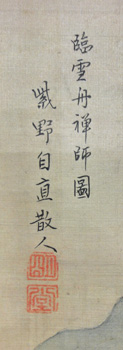 臨雪舟禅師圖
紫野自直散人